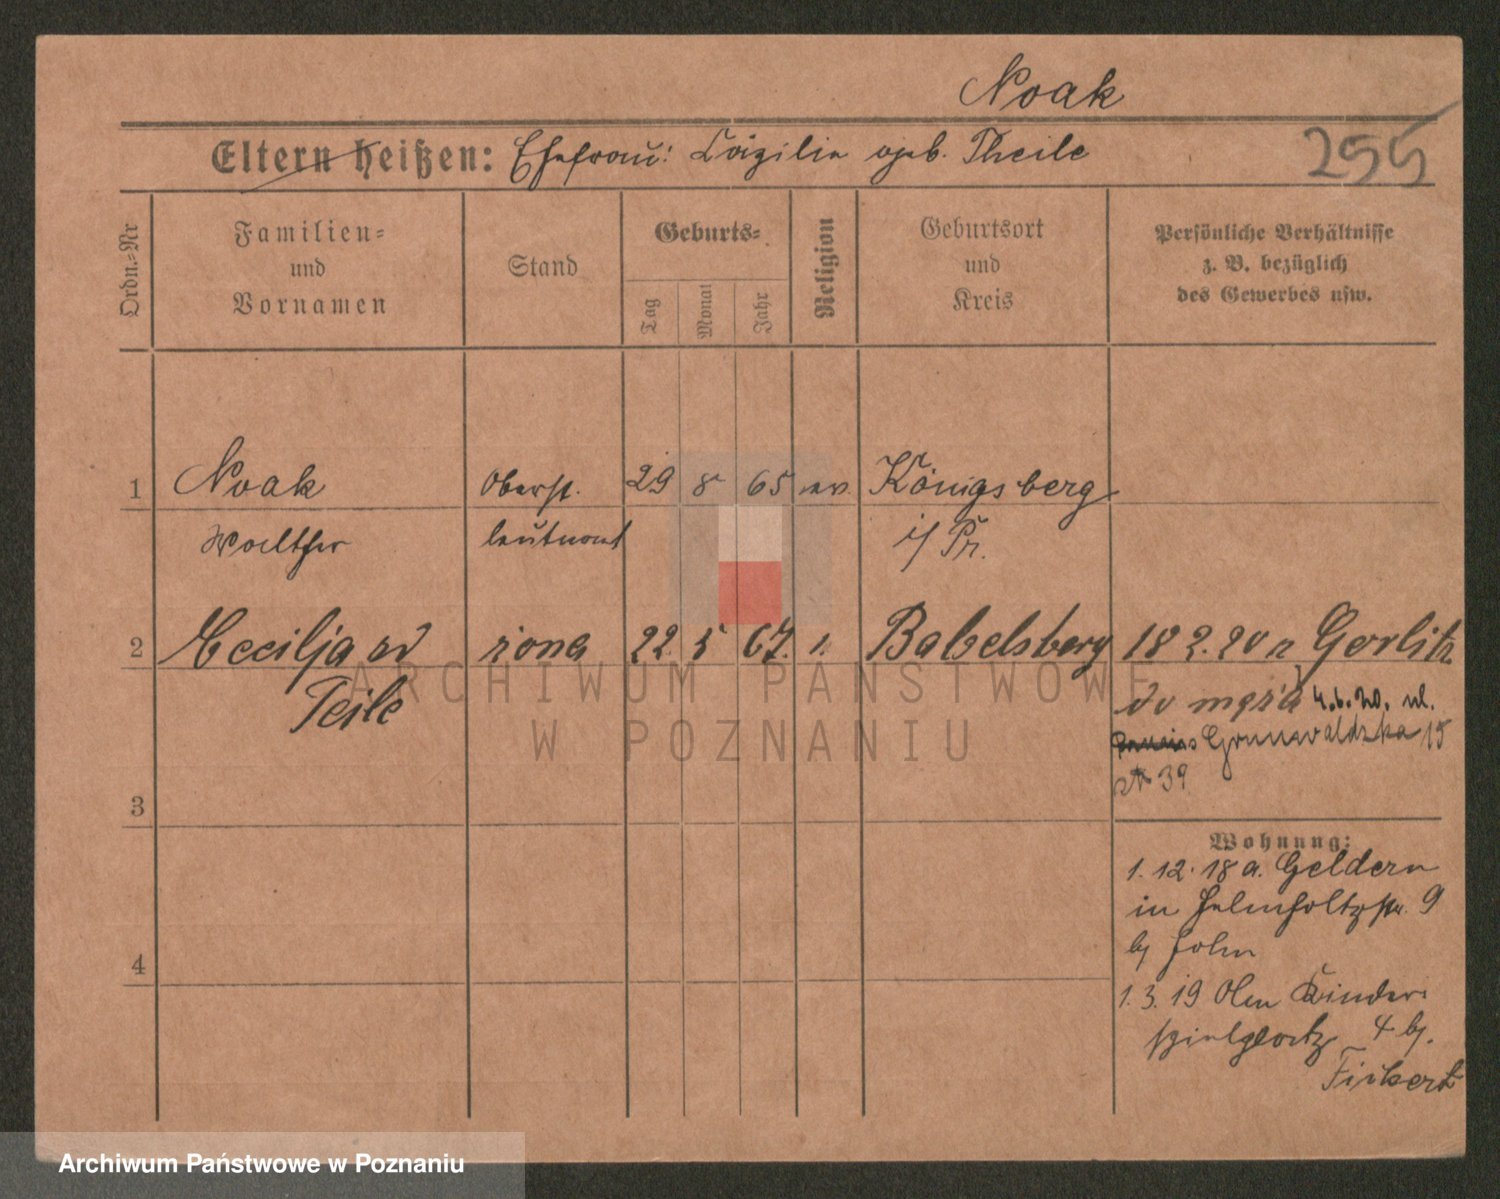 Noak
Eltern heißen: Ehefrau: Cäzilie geb. Theile
255
Ordn.=Nr
Familien=
und
Vornamen
Stand
Geburts=
Tag
Monat
Jahr
Religion
Geburtsort
und
Kreis
Persönliche Verhältnisse
z. B. bezüglich
des Gewerbes usw.
1 Noak Oberst. 29 8 65 ev. Königsberg
Walther leutnant i/ Pr.
2 Cecilja żona 22 5 67. Babelsberg 18 2. 20 z Gorlitz
Teile do męża 4.6.20. ul.
Grunwaldzka 15
39
3
Wohnung:
1. 12. 18 a. Geldern
in Helmholtzstr. 9
bj Holm
4
1. 3. 19 Am Kinder
spielplatz 4 bj.
Fickert
ARCHIWUM PAŃSTWOWE
W POZNANIU
Archiwum Państwowe w Poznaniu